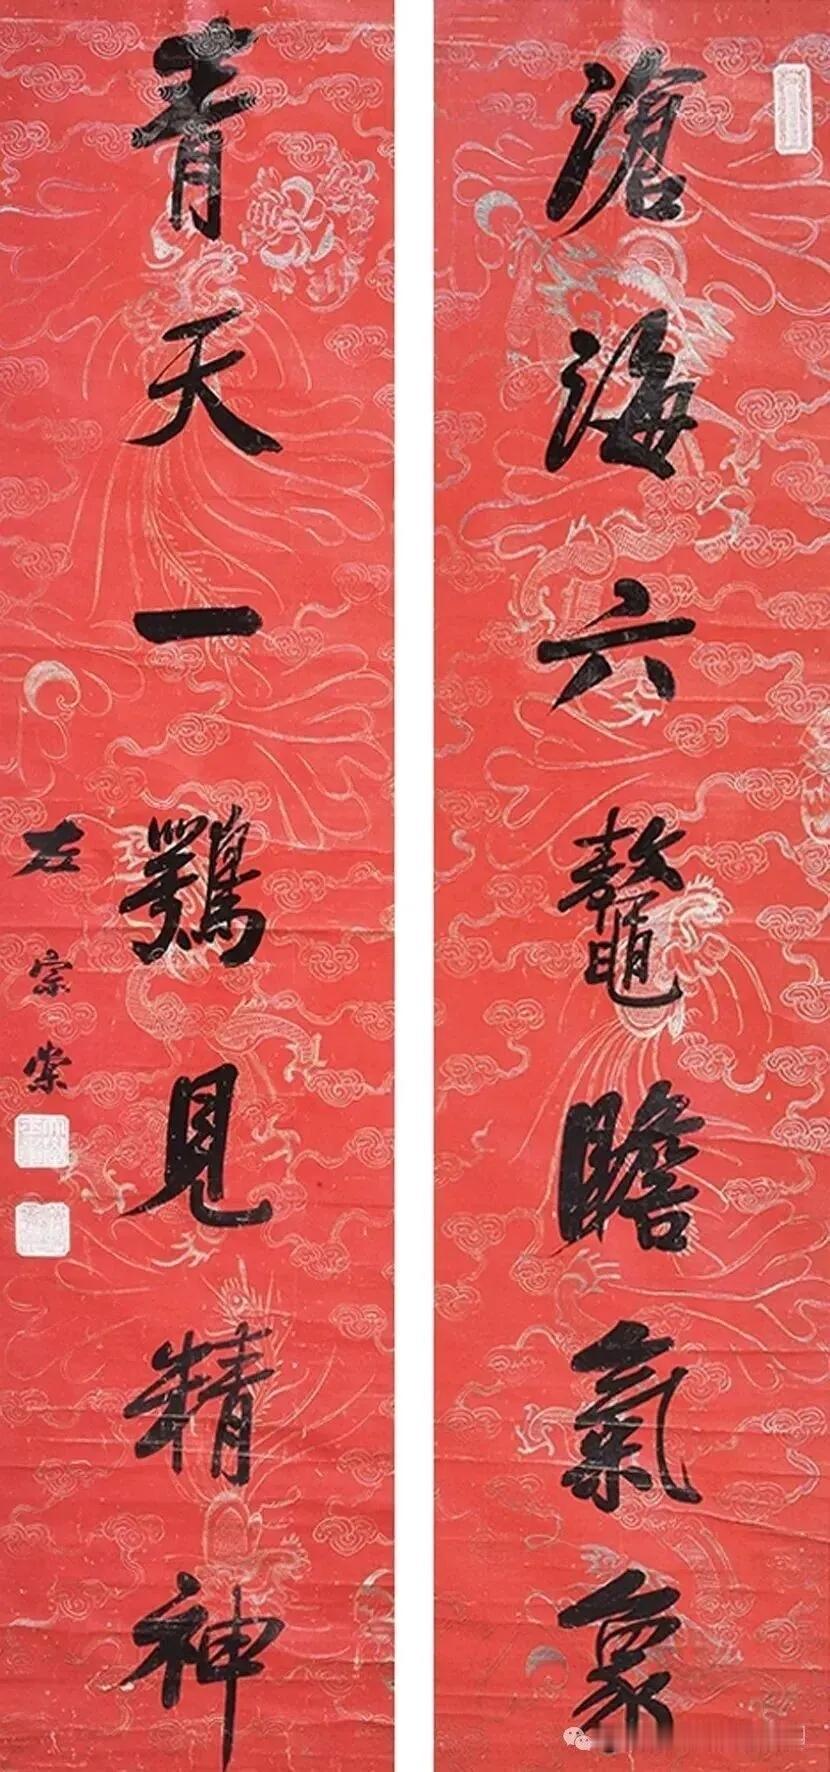 滄海六鼇瞻氣象
青天一鶚見精神
左宗棠